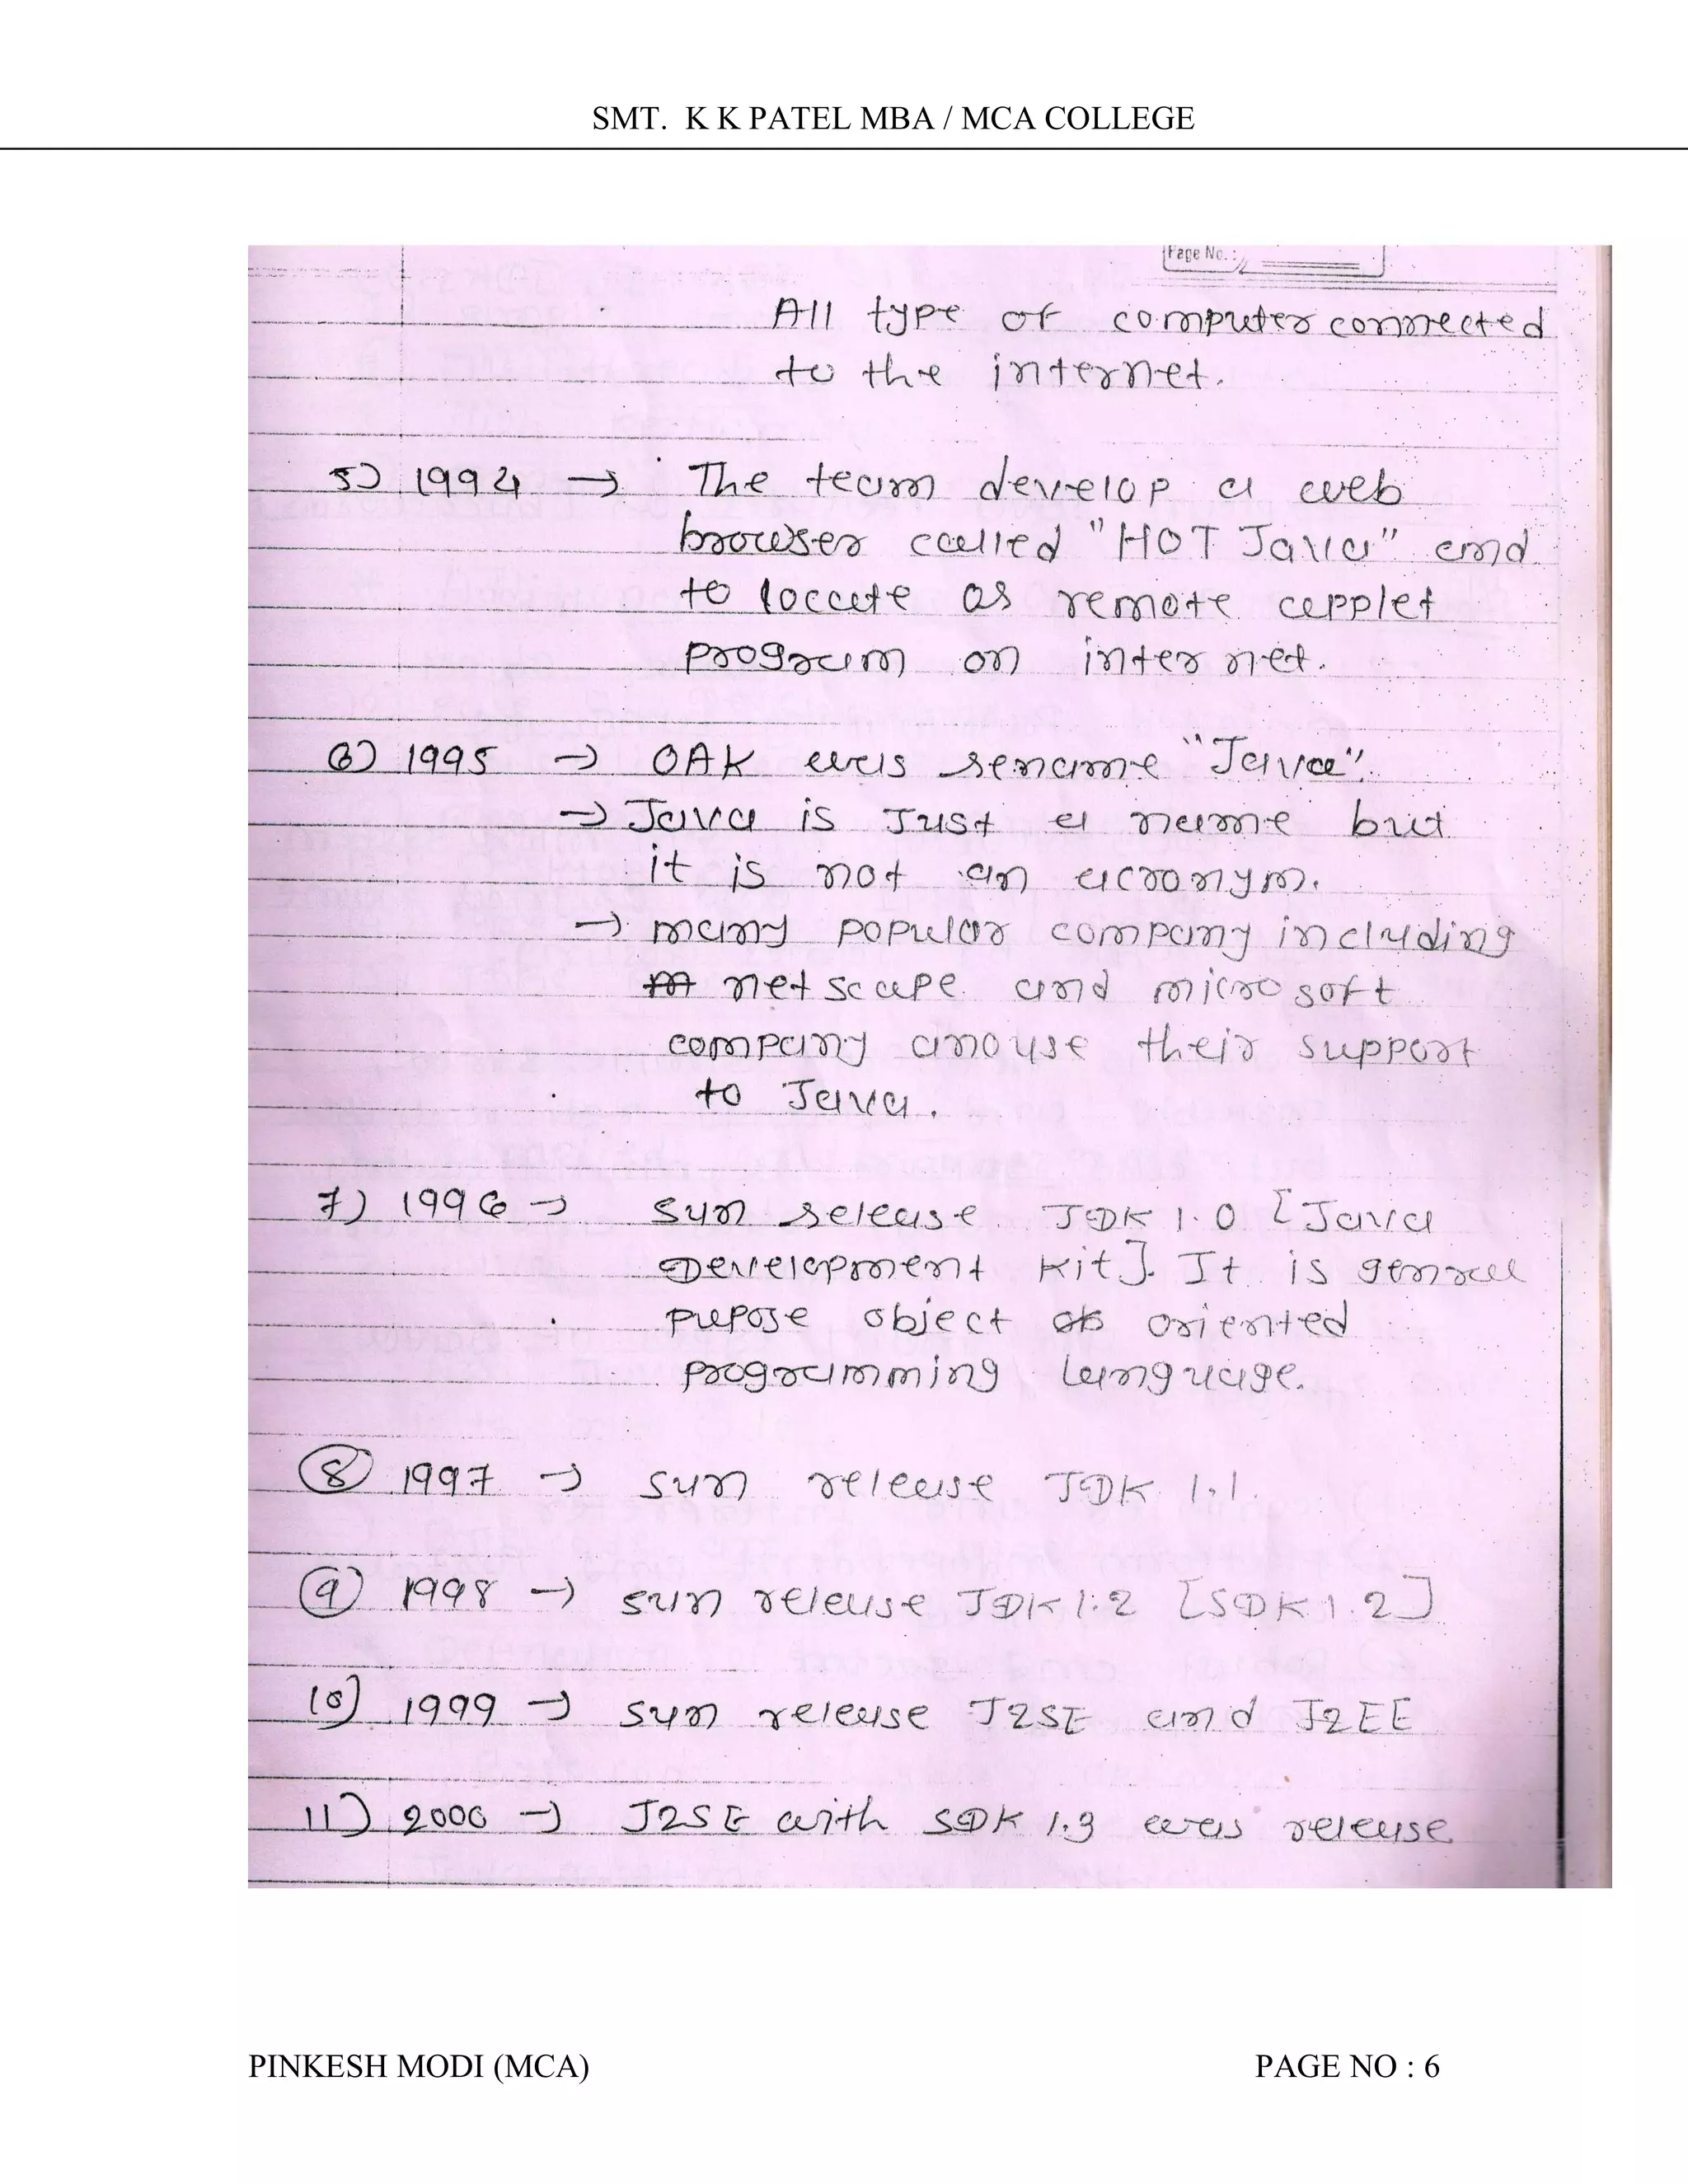 SMT.  K K PATEL MBA / MCA COLLEGE
Page No. :
All type of computer connected
to the internet.
5) 1994 → The team develop a web
browser called "HOT Java" and
to locate as remote applet
program on internet.
6) 1995 → OAK was rename "Java".
→ Java is Just a name but
it is not an acronym.
→ many popular company including
netscape and microsoft
company anouse their support
to Java.
7) 1996 → Sun release JDK 1.0 [Java
Development Kit]. It is genral
pupose object oriented
programming language.
8 1997 → Sun release JDK 1.1
9 1998 → sun release JDK 1.2 [SDK 1.2]
10) 1999 → sun release J2SE and J2EE
11) 2000 → J2SE with SDK 1.3 was release
PINKESH MODI (MCA) PAGE NO : 6